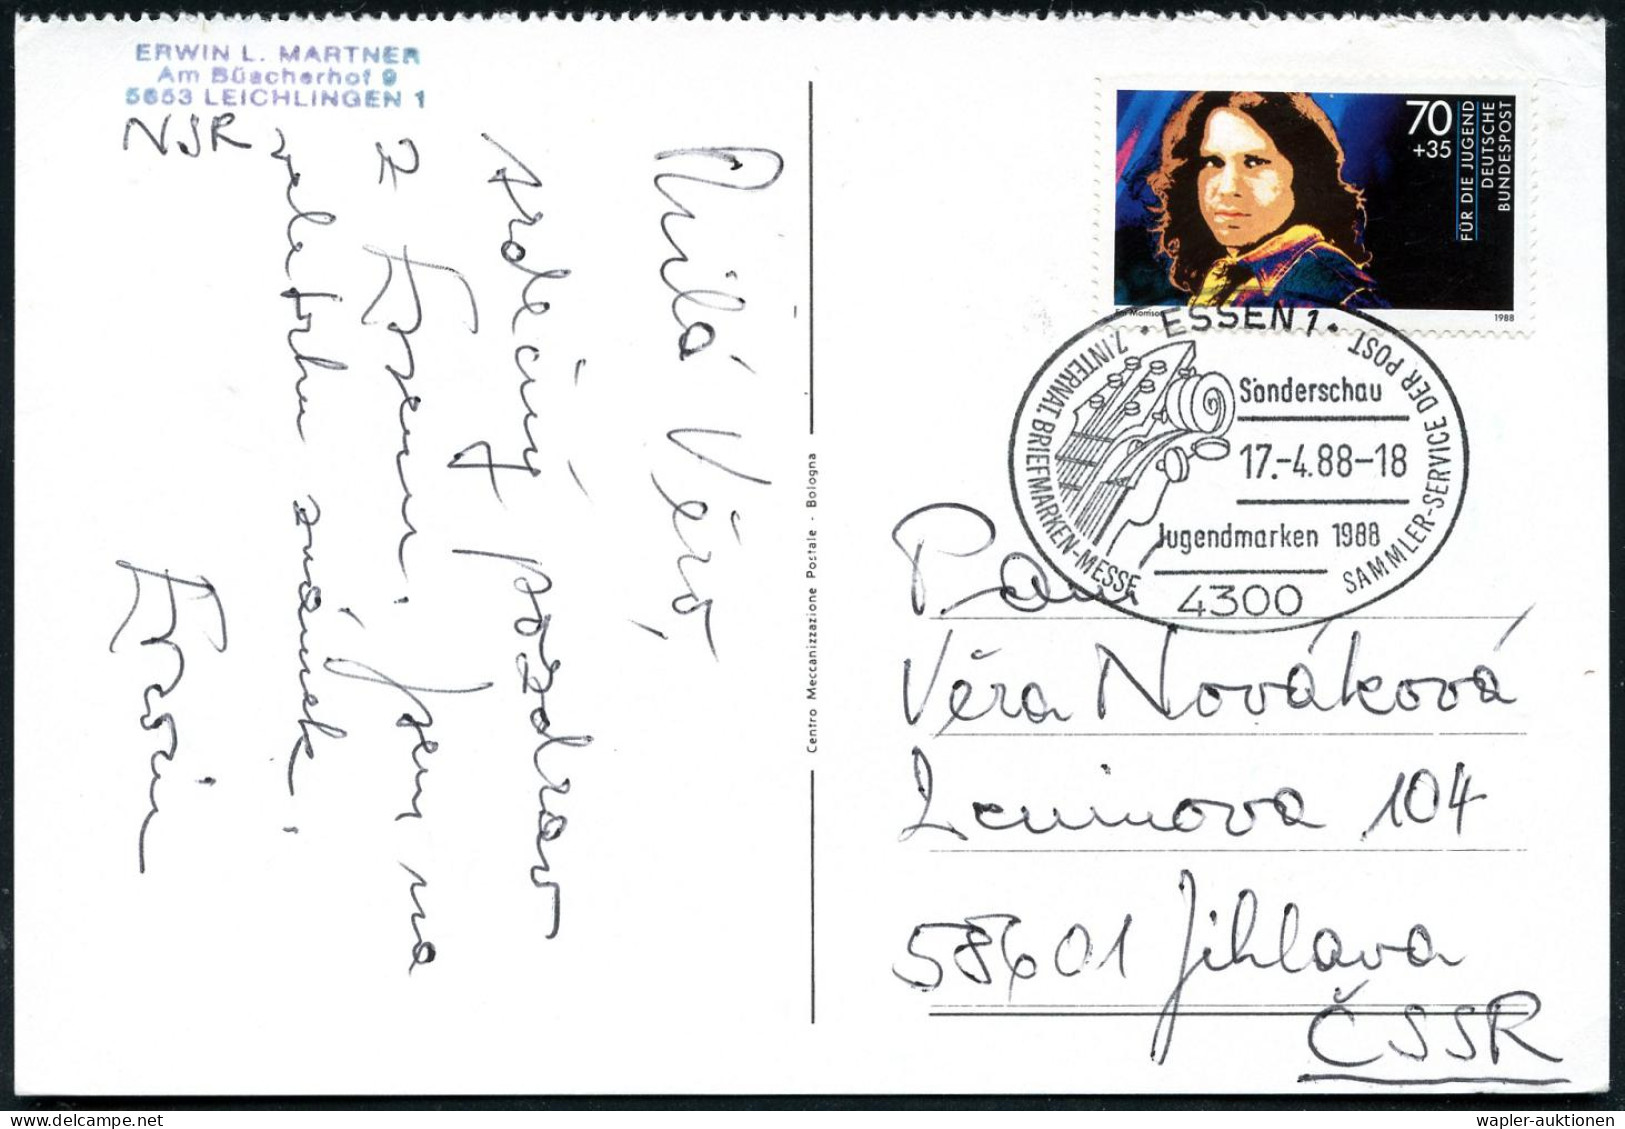 ERWIN L. MARTNER
Am Büscherhof 9
5653 LEICHLINGEN 1
NSR
Milá Věro,
srdečný pozdrav
z Essenu. Jsem na
veletrhu známek.
Erwin
Centro Meccanizzazione Postale - Bologna
70
+35
FÜR DIE JUGEND
DEUTSCHE
BUNDESPOST
Jim Morrison
1988
ESSEN 1
7. INTERNAT. BRIEFMARKEN-MESSE
SAMMLER-SERVICE DER POST
Sonderschau
17.-4.88-18
Jugendmarken 1988
4300
Paní
Věra Nováková
Leninova 104
58601 Jihlava
ČSSR
wapler-auktionen